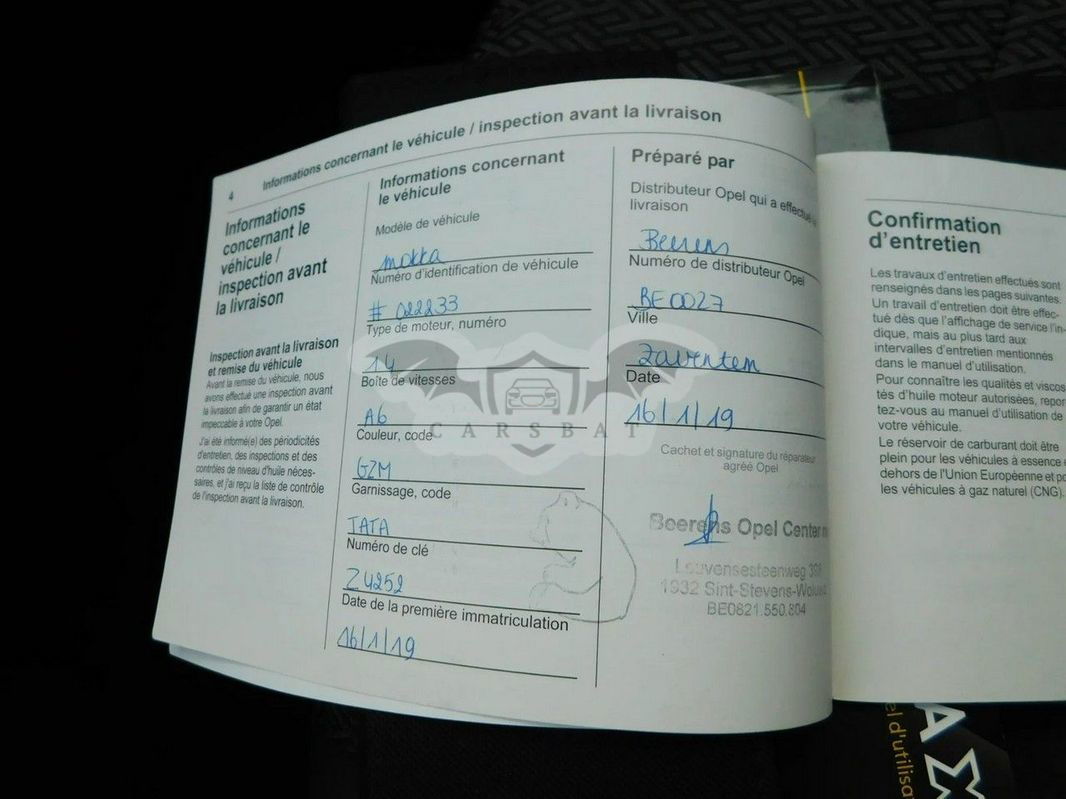 4 Informations concernant le véhicule / inspection avant la livraison
Informations
concernant le
véhicule /
inspection avant
la livraison
Inspection avant la livraison
et remise du véhicule
Avant la remise du véhicule, nous
avons effectué une inspection avant
la livraison afin de garantir un état
impeccable à votre Opel.
J'ai été informé(e) des périodicités
d'entretien, des inspections et des
contrôles de niveau d'huile néces-
saires, et j'ai reçu la liste de contrôle
de l'inspection avant la livraison.
Informations concernant
le véhicule
Modèle de véhicule
mokka
Numéro d'identification de véhicule
# 022233
Type de moteur, numéro
14
Boîte de vitesses
A6
Couleur, code
GZM
Garnissage, code
TATA
Numéro de clé
Z4252
Date de la première immatriculation
16/1/19
Préparé par
Distributeur Opel qui a effectué la
livraison
Beerens
Numéro de distributeur Opel
BE0027
Ville
Zaventem
Date
16/1/19
Cachet et signature du réparateur
agréé Opel
Beerens Opel Center
Leuvensesteenweg
1932 Sint-Stevens-Woluwe
BE0821.550.804
CARSBAT
Confirmation
d'entretien
Les travaux d'entretien effectués sont
renseignés dans les pages suivantes.
Un travail d'entretien doit être effec-
tué dès que l'affichage de service l'in-
dique, mais au plus tard aux
intervalles d'entretien mentionnés
dans le manuel d'utilisation.
Pour connaître les qualités et viscos
tés d'huile moteur autorisées, repor
tez-vous au manuel d'utilisation de
votre véhicule.
Le réservoir de carburant doit être
plein pour les véhicules à essence
dehors de l'Union Européenne et po
les véhicules à gaz naturel (CNG).
A X
el d'utilisa